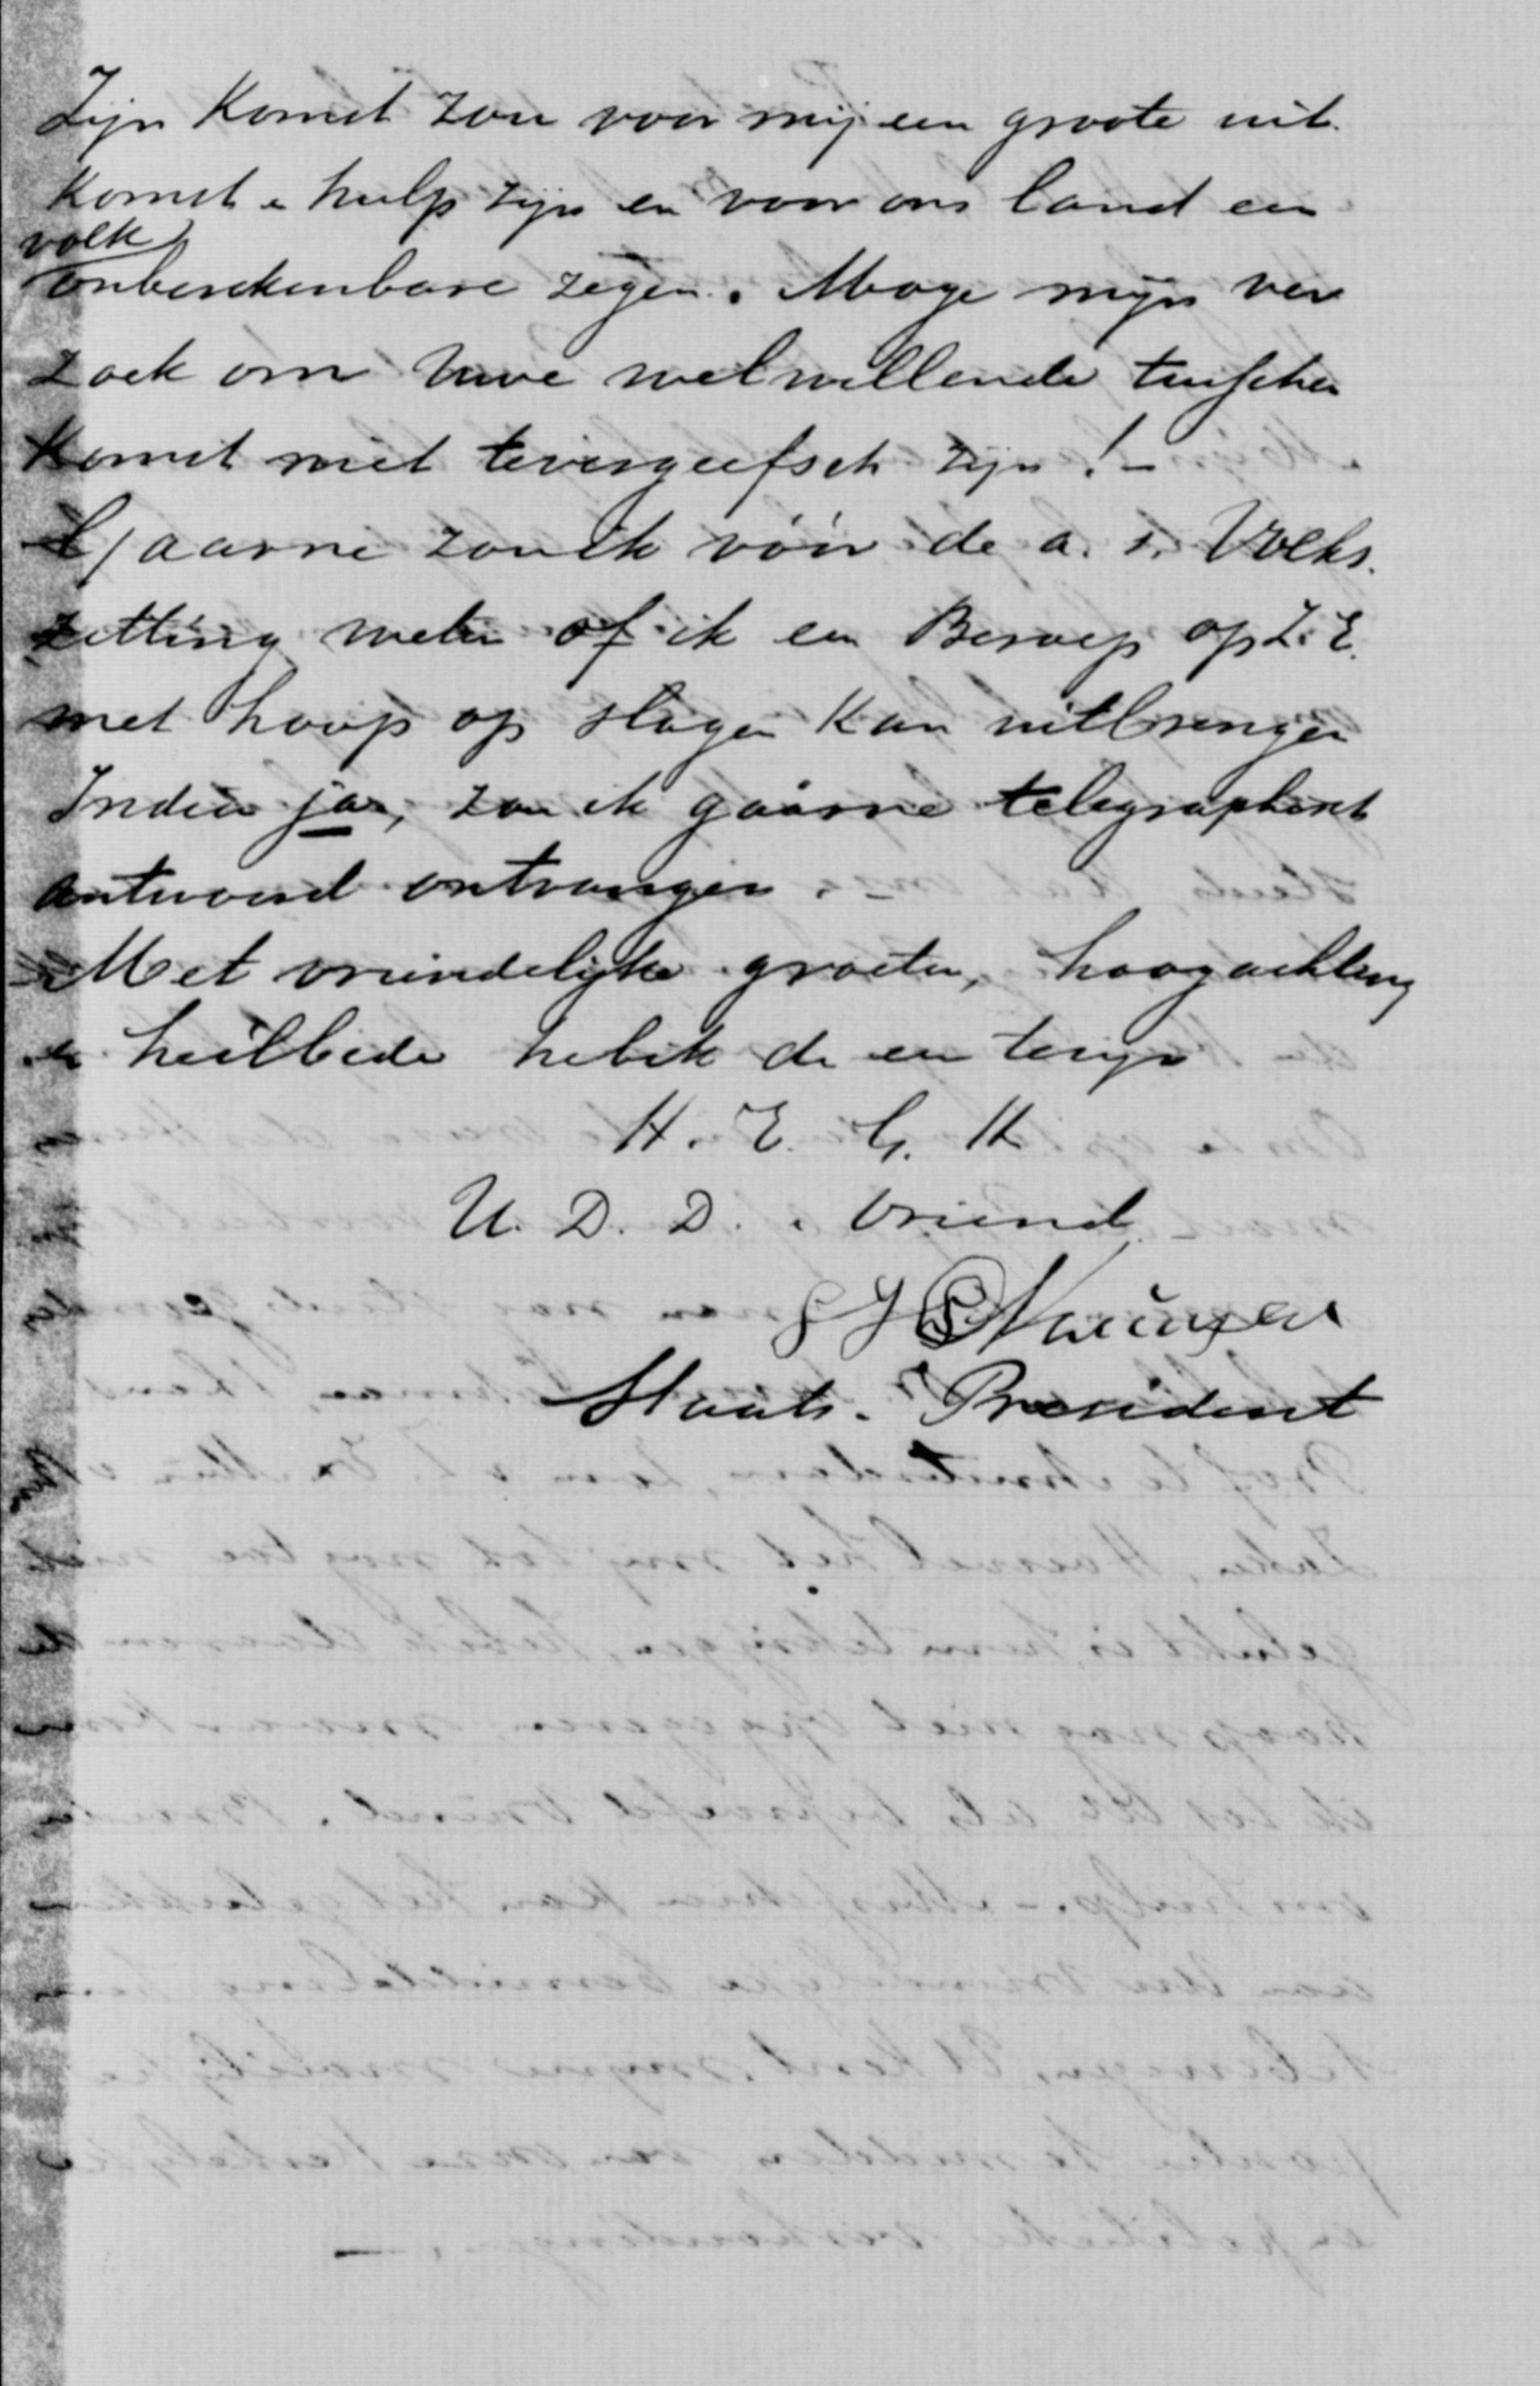 Zijn Komst zou voor mij een groote uit
komst & hulp zijn en voor ons land en
volk
onberekenbare zegen. Moge mijn ver
zoek om Uwe welwillende tusschen
komst niet tevergeefsch zijn! -
Gaarne zou ik vóór de a. s. Volks.
zitting weten of ik een Beroep op Z. E.
met hoop op slagen kan uitbrengen
Indien ja, zou ik gaarne telegraphisch
antwoord ontvangen. -
Met vriendelijke groeten, hoogachting
en heilbede heb ik de eer te zijn
H. E. G. H
U. D. D. & Vriend
Staats-President